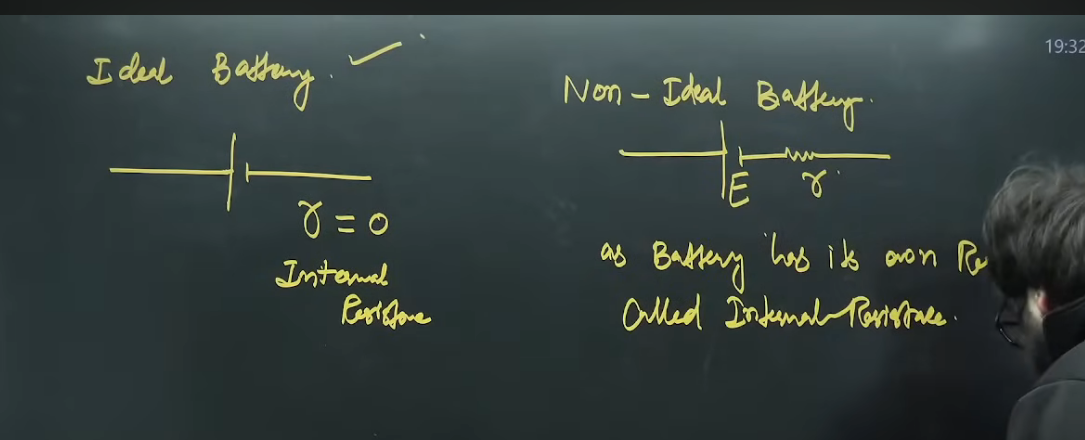 Ideal Battery.
r = 0
Internal
Resistance
19:32
Non - Ideal Battery.
E r
as Battery has its own Re
Called Internal Resistance.